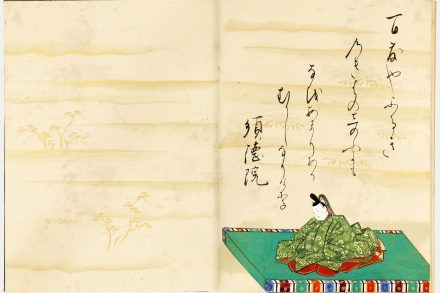 百敷やふるき
乃きはの志のふにも
なをあまりある
むかしなりけり
順德院